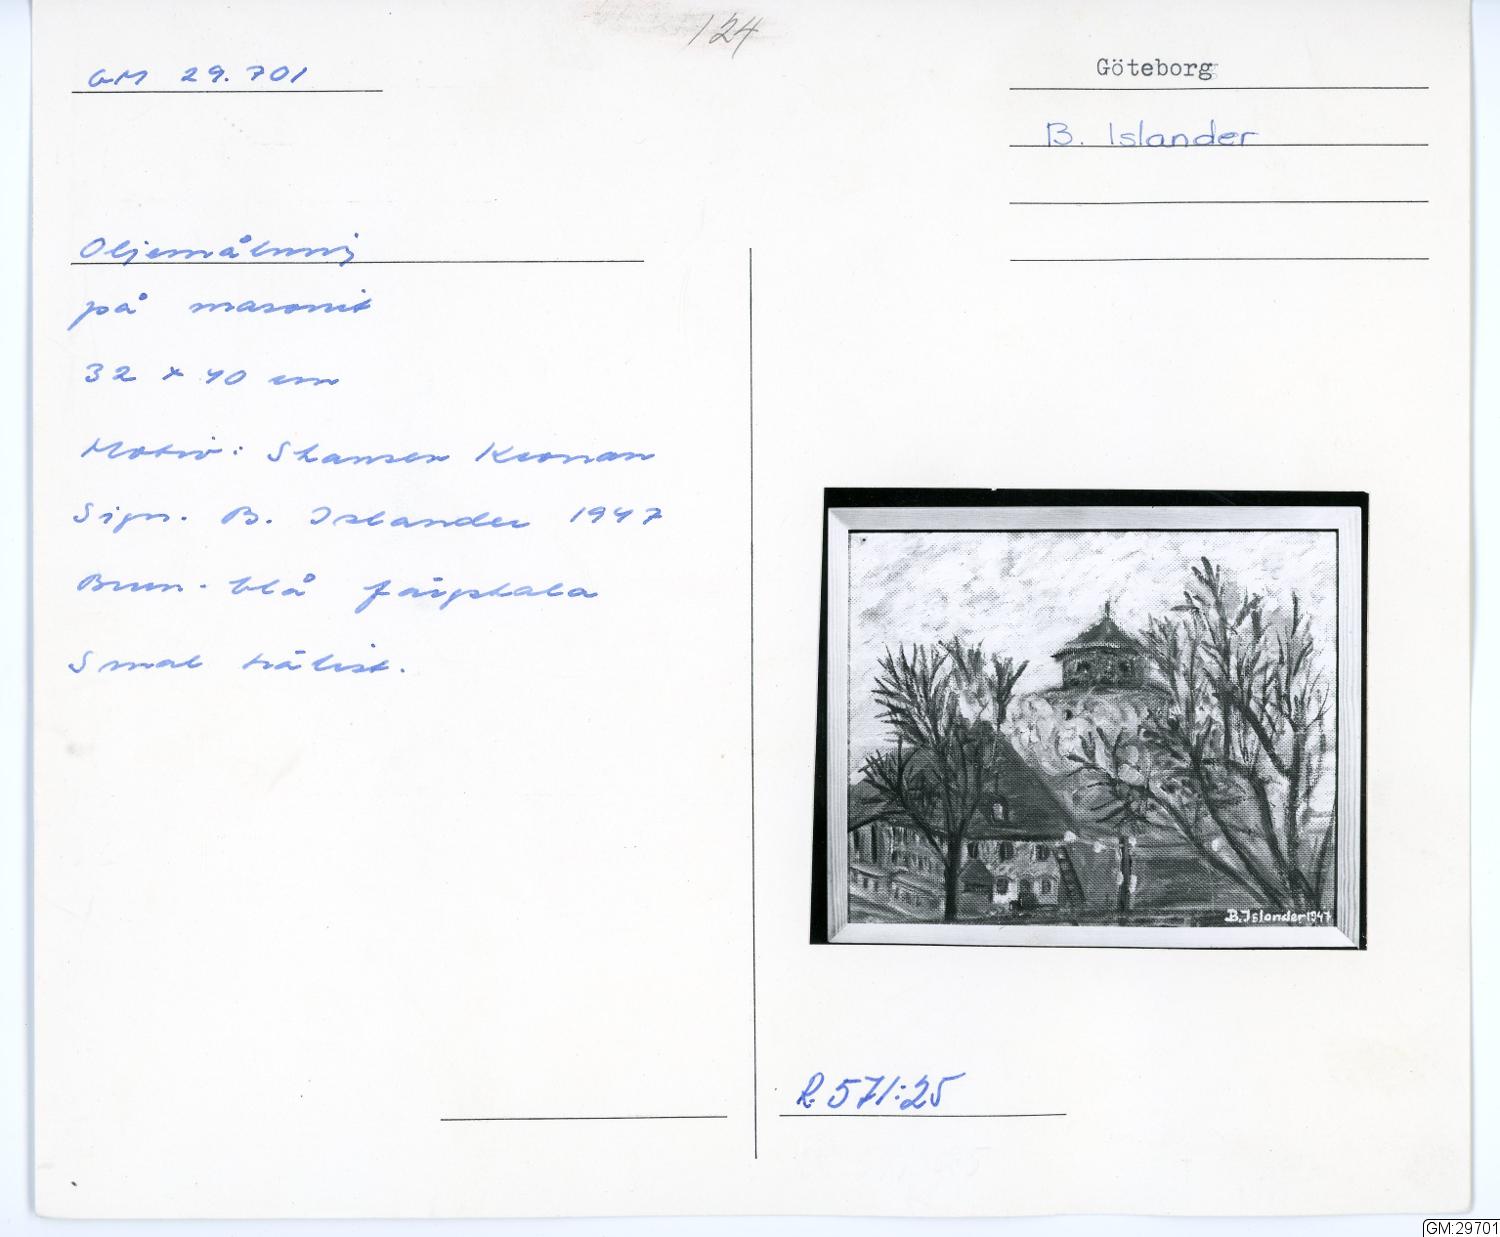 124
GM 29.701
Göteborg
B. Islander
Oljemålning
på masonit
32 x 40 cm
Motiv: Skansen Kronan
Sign. B. Islander 1947
Brun-blå färgskala
Smal trälist.
B.Islander 1947
R 571:25
GM:29701